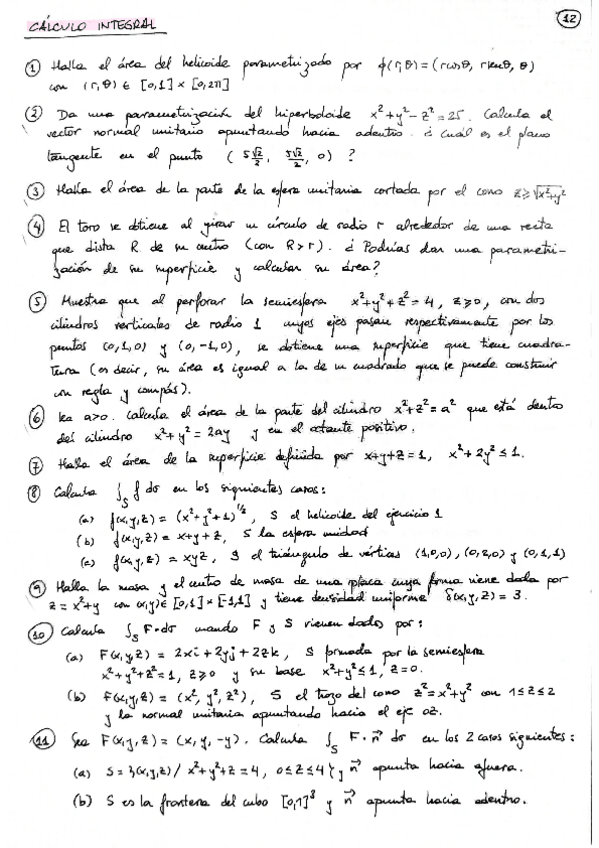 CÁLCULO INTEGRAL
12
① Halla el área del helicoide parametrizado por ϕ(r,θ)=(r cosθ, r senθ, θ)
con (r,θ) ∈ [0,1] × [0,2π]
② Da una parametrización del hiperboloide x²+y²−z²=25. Calcula el
vector normal unitario apuntando hacia adentro. ¿Cuál es el plano
tangente en el punto (5√2/2, 5√2/2, 0) ?
③ Halla el área de la parte de la esfera unitaria cortada por el cono z≥√x²+y²
④ El toro se obtiene al girar un círculo de radio r alrededor de una recta
que dista R de su centro (con R>r). ¿Podrías dar una parametri-
zación de su superficie y calcular su área?
⑤ Muestra que al perforar la semiesfera x²+y²+z²=4, z≥0, con dos
cilindros verticales de radio 1 cuyos ejes pasan respectivamente por los
puntos (0,1,0) y (0,−1,0), se obtiene una superficie que tiene cuadra-
tura (es decir, su área es igual a la de un cuadrado que se puede construir
con regla y compás).
⑥ Sea a>0. Calcula el área de la parte del cilindro x²+z²=a² que está dentro
del cilindro x²+y²=2ay y en el octante positivo.
⑦ Halla el área de la superficie definida por x+y+z=1, x²+2y²≤1.
⑧ Calcula ∫_S f dσ en los siguientes casos:
(a) f(x,y,z) = (x²+y²+1)^1/2, S el helicoide del ejercicio 1
(b) f(x,y,z) = x+y+z, S la esfera unidad
(c) f(x,y,z) = xyz, S el triángulo de vértices (1,0,0), (0,2,0) y (0,1,1)
⑨ Halla la masa y el centro de masa de una placa cuya forma viene dada por
z=x²+y con (x,y)∈[0,1]×[-1,1] y tiene densidad uniforme δ(x,y,z) = 3.
⑩ Calcula ∫_S F·dσ cuando F y S vienen dados por:
(a) F(x,y,z) = 2xi + 2yj + 2zk, S formada por la semiesfera
x²+y²+z²=1, z≥0 y su base x²+y²≤1, z=0.
(b) F(x,y,z) = (x²,y²,z²), S el trozo del cono z²=x²+y² con 1≤z≤2
y la normal unitaria apuntando hacia el eje OZ.
⑪ Sea F(x,y,z) = (x, y, -y). Calcula ∫_S F·n⃗ dσ en los 2 casos siguientes:
(a) S={(x,y,z)/ x²+y²+z=4, 0≤z≤4} y n⃗ apunta hacia afuera.
(b) S es la frontera del cubo [0,1]³ y n⃗ apunta hacia adentro.